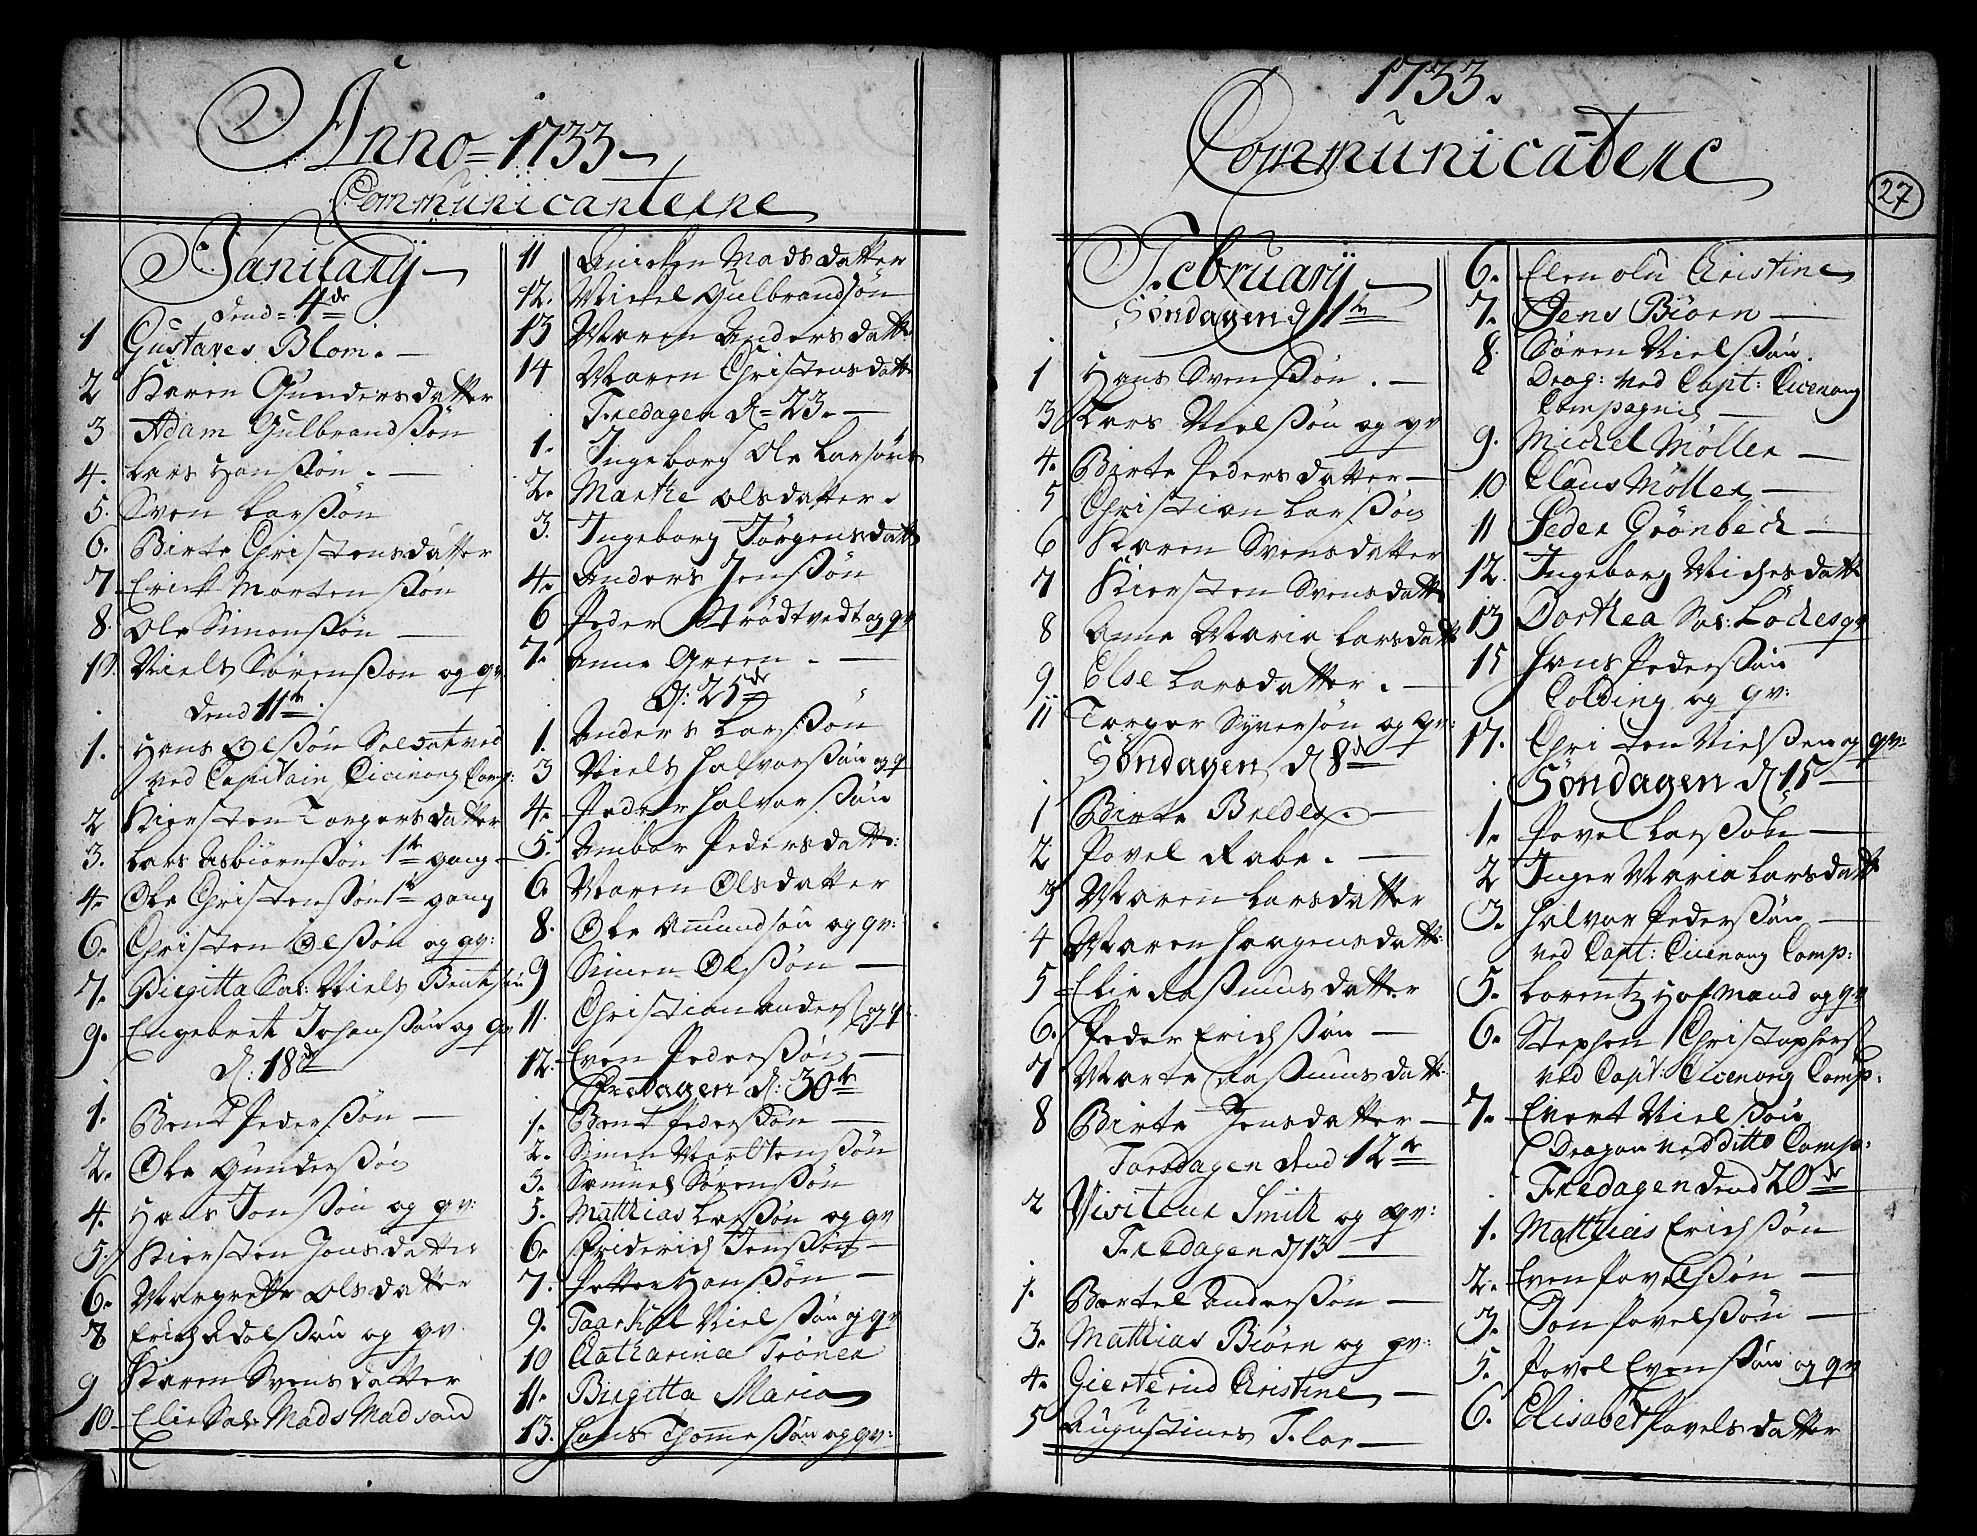 Anno 1733
Communicanterne
Januarij
dend 4de
1 Gustaves Blom.
2 Karen Gundersdatter
3 Adam Gulbrandßøn
4. Lars Hanßøn.
5. Sven Larßøn
6. Birte Christensdatter
7 Erick Mortenßøn
8. Ole Simonßøn
10. Niels Sørenßøn og qv
dend 11te
1. Hans Olßøn Soldat ved
ved Capitain Cicenong Comp:
2 Kiersten Torgersdatter
3. Lars Asbiørnßøn 1te gang
4. Ole Christenßøn 1te gang
6. Christen Olßøn og qv:
7. Birgitta Sal: Niels Bentsøn
9. Engebret Johanßøn og qv
d: 18de
1. Bent Pederßøn
2. Ole Gunderßøn
4. Hans Jonßøn og qv:
5. Kiersten Jonsdatter
6. Margrette Olsdatter
8 Erich Adolßøn og qv.
9 Karen Svensdatter
10. Elie Sal: Mads Madsøns
11 Anicken Madsdatter
12. Mickel Gulbrandsøn
13 Maren Andersdatt
14 Maren Christensdatt
Fredagen d. 23.
1. Ingeborg Ole Larsøns
2. Marthe Olsdatter.
3. Ingeborg Jørgensdatt
4. Anders Jenßøn
6 Peder Strødtvedt og qv
7. Anne Green.
d: 25de
1. Anders Larßøn
3 Niels Halvorßøn og q
4. Peder Halvorßøn
5. Ambor Pedersdatt:
6. Maren Olsdatter
8. Ole Amundsøn og qv:
9 Simen Olßøn
11. Christian Anderß og q:
12. Even Pederßøn
Fredagen d: 30te
1. Bent Pederßøn
2. Simen Mortenßøn
3. Samuel Sørenßøn
5. Matthias Larßøn og qv
6. Friderich Jenßøn
7. Petter Hanßøn
9. Taarkel Nielßøn og qv
10 Catharina Trøner
11. Birgitta Maria
13. Hans Thommeßøn og qv:
1733.
Communicatere
27
Februarij
Søndagen d 1te
1 Hans Svenßøn.
3 Lars Nielßøn og qv
4. Birte Pedersdatter
5 Christian Larßøn
6 Karen Svensdatter
7 Kiersten Svensdatt
8 Anne Maria Larsdatt
9 Else Larsdatter.
11 Torger Syversøn og qv:
Søndagen d 8de
1 Birte Breder.
2 Povel Rabe.
3 Maren Larsdatter
4 Maren Haagensdatt:
5 Elie Rasmusdatter
6. Peder Erichßøn
7 Marte Rasmusdatt:
8 Birte Jensdatter
Torsdagen dend 12te
2 Visiteur Smith og qv:
Fredagen d 13
1. Bertel Anderßøn
3. Matthias Biørn og qv:
4. Gierterud Cristine
5 Augustines Flor
6. Elen olu Cristine
7. Jens Biørn
8. Søren Nielßøn.
Drag: ved Capt: Cicenong
Compagnie
9. Michel Møller
10 Claus Møller
11 Peder Grønbech
12. Ingeborg Nielsdatt
13 Dorthea Sal: Lødesqv
15 Hans Pederßøn
Colding og qv:
17. Christen Nielßen og qv:
Søndagen d 15
1. Povel Larßøn
2 Inger Maria Larsdatt
3. Halvor Pederßøn
ved Capt: Cicenong Comp:
5. Lorentz Hofmand og qv
6. Stephen Christophersß
ved Capt: Cicenong Comp:
7. Evert Nielßøn
Dragon ved ditto Comp:
Fredagen dend 20de
1. Matthias Erichßøn
2. Even Povelßøn
3. Jon Povelßøn
5. Povel Evenßøn og qv
6. Elisabet Povelsdatter